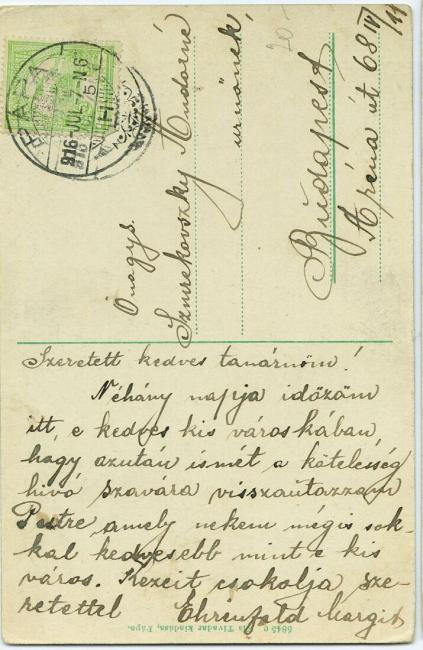 PÁPA
916-JUL-7-N6
20-
Onagys.
Szmrekovszky Andorné
úrnőnek
Budapest
Aréna út 68 IV/11
Szeretett kedves tanárnőm!
Néhány napja időzöm
itt, e kedves kis városkában,
hogy azután ismét a kötelesség
hívó szavára visszautazzam
Pestre amely nekem mégis sok-
kal kedvesebb mint e kis
város. Kezeit csokolja sze-
retettel Ehrenfeld Margit
Tivadar kiadása, Pápa.